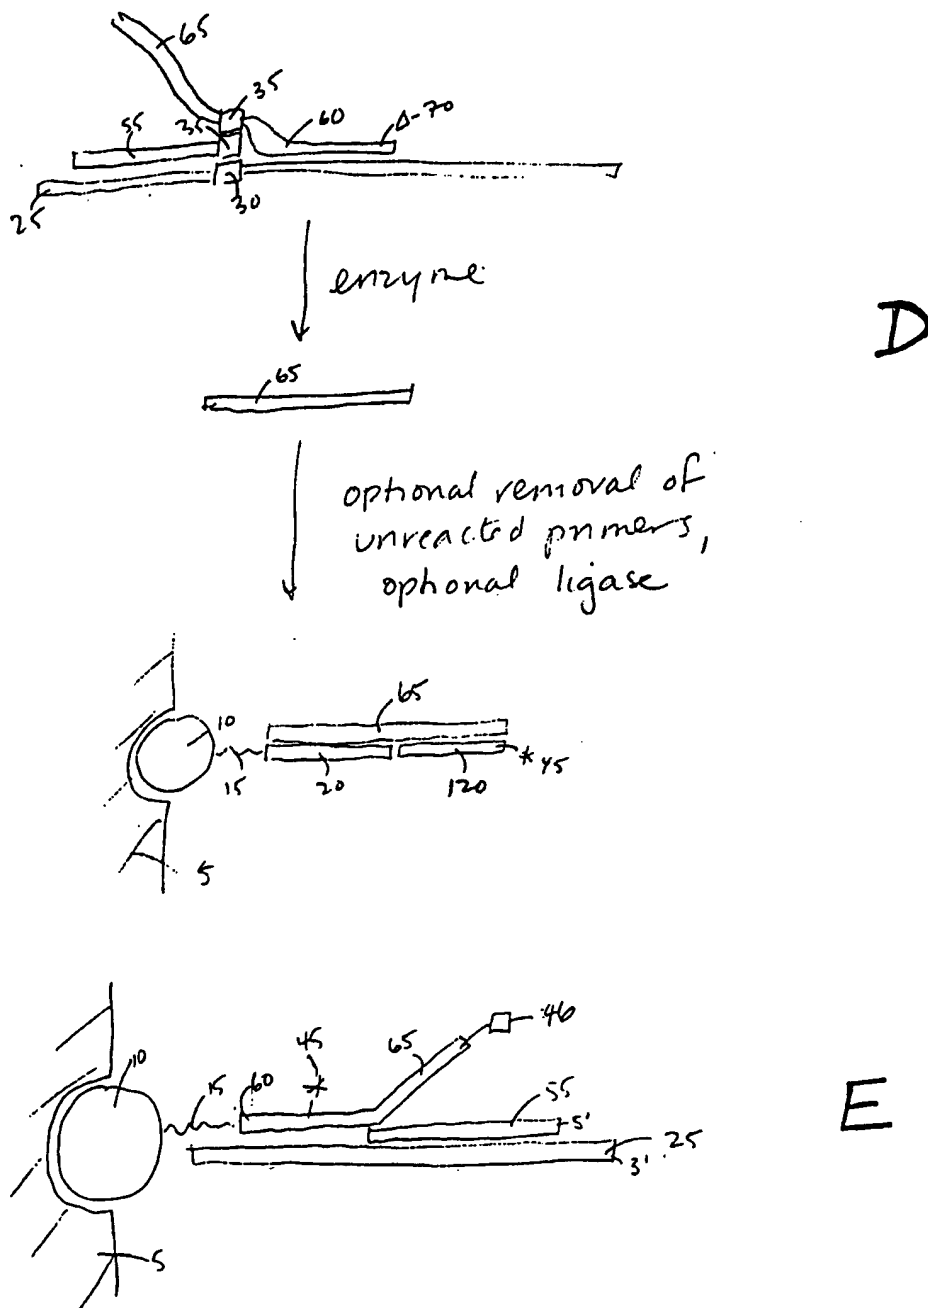 65
35
55
35
60
Δ-70
25
30
enzyme
D
65
optional removal of
unreacted primers,
optional ligase
65
10
15
20
120
*45
5
46
45
65
10
60
*
55
15
5'
25
3'
E
5